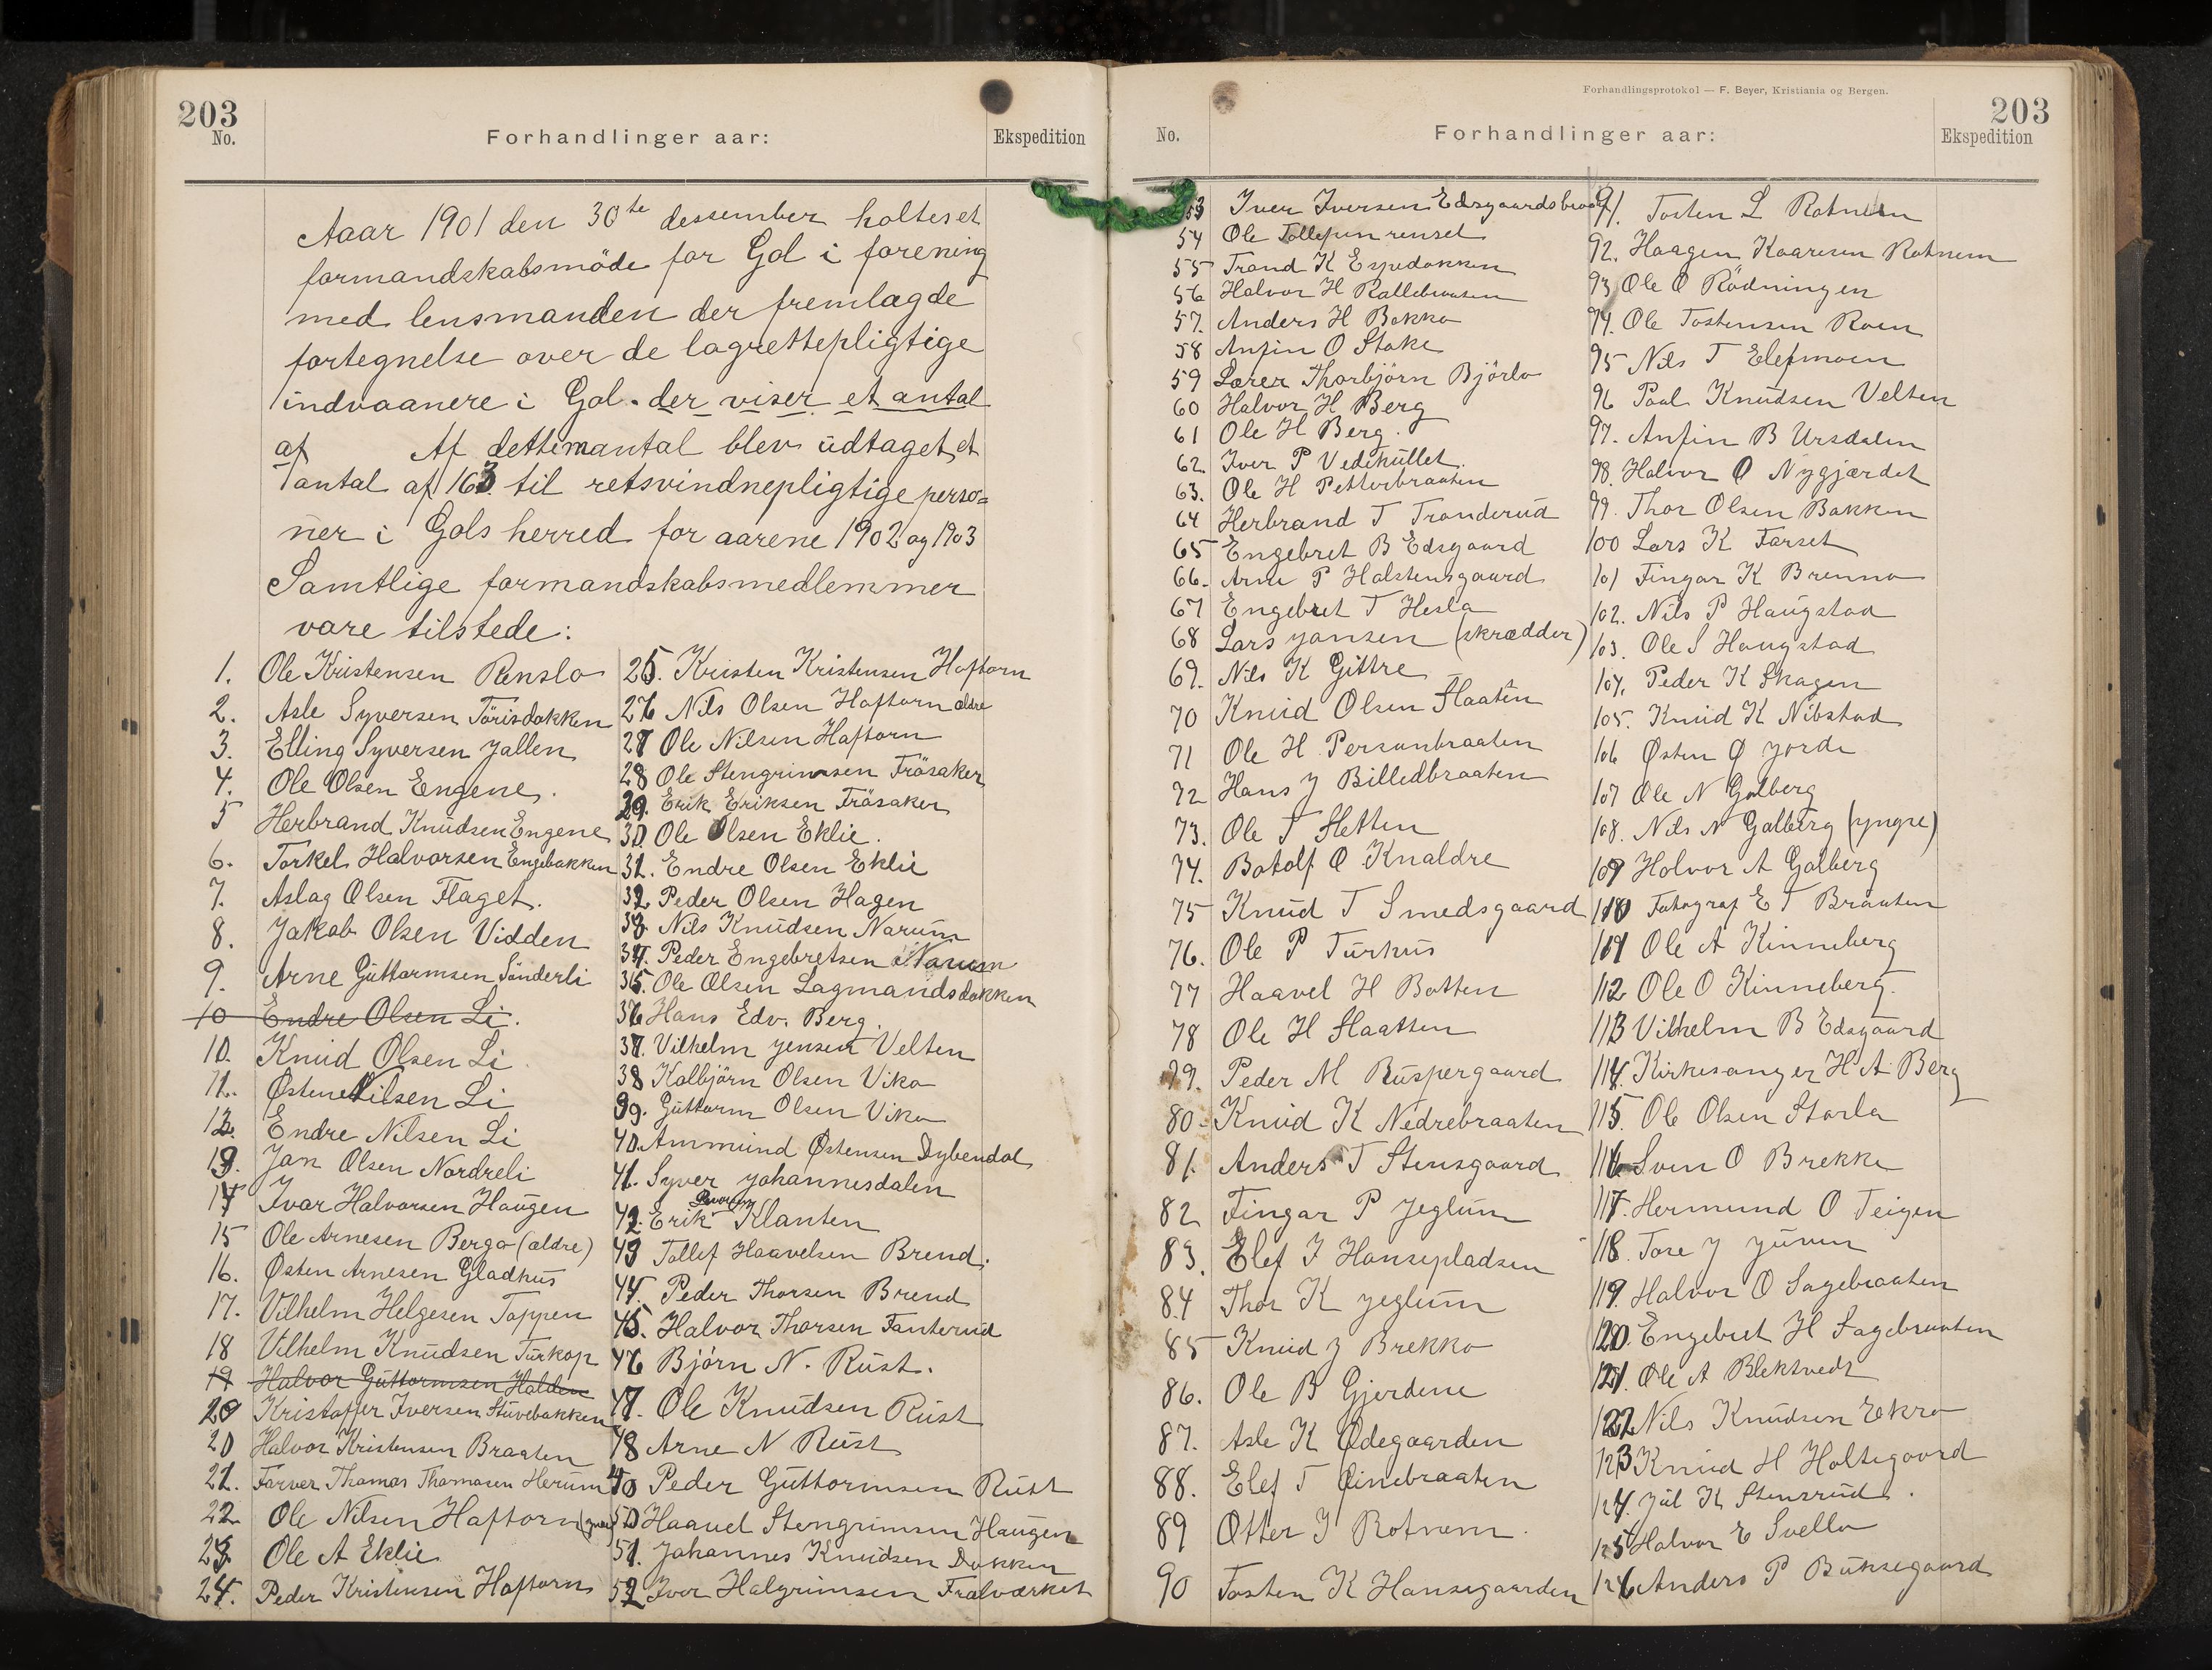 203
No.
Forhandlinger aar:
Ekspedition
Aaar 1901 den 30te dessember holtes et
formandskabsmöde for Gol i forening
med lensmanden der fremlagde
fortegnelse over de lagrettepligtige
indvaanere i Gol. der viser et antal
af Af dette mantal blev udtaget et
antal af 163 til retsvindnepligtige perso=
ner i Gols herred for aarene 1902 og 1903
Samtlige formandskabsmedlemmer
vare tilstede:
1. Ole Kristensen Renslo
2. Asle Syversen Törisdokken
3. Elling Syversen Jallen
4. Ole Olsen Engene.
5 Herbrand Knudsen Engene
6. Torkel Halvorsen Engebakken
7. Aslag Olsen Flaget.
8. Jakob Olsen Vidden
9. Arne Guttormsen Sönderli
10 Endre Olsen Li.
10. Knud Olsen Li
11. Østen Nilsen Li
12. Endre Nilsen Li
13. Jan Olsen Nordreli
14 Ivar Halvorsen Haugen
15 Ole Arnesen Berga (ældre)
16. Østen Arnesen Gladhus
17. Vilhelm Helgesen Toppen
18 Vilhelm Knudsen Turkop
19 Halvor Guttormsen Halden
20 Kristoffer Iversen Stuvebakken
20 Halvor Kristensen Braaten
21. Farver Thomas Thomasen Herum
22 Ole Nilsen Haftorn
23. Ole A Eklie
24. Peder Kristensen Haftorn
25. Kristen Kristensen Haftorn
26 Nils Olsen Haftorn ældre
27 Ole Nilsen Haftorn
28 Ole Stengrimsen Fräsaker
29. Erik Eriksen Fräsaker
30. Ole Olsen Eklie.
31. Endre Olsen Eklie
32. Peder Olsen Hagen
33. Nils Knudsen Narum
34. Peder Engebretsen Narum
35. Ole Olsen Lagmandsdokken
36 Hans Edv. Berg.
37. Vilhelm Jensen Velten
38 Kolbjörn Olsen Viko
39. Guttorm Olsen Viko
40. Ammund Østensen Dybendal
41. Syver Johannesdalen
42. Erik Klanten
43 Tollef Haavelsen Brend.
44. Peder Thorsen Brend
45. Halvor Thorsen Fanterud
46 Björn N. Rust.
47. Ole Knudsen Rust
48 Arne N Rust
Peder Guttormsen Rust
50 Haavel Stengrimsen Haugen
51. Johannes Knudsen Dokken
52 Iver Halgrimsen Fralværket
Forhandlingsprotokol — F. Beyer, Kristiania og Bergen.
203
No.
Forhandlinger aar:
Ekspedition
53 Iver Iversen Edsgaardsbraat
54 Ole Tollefsen renset
55 Trond K Espedokken
56 Halvor H
57. Anders H Bakko
58 Anfin O Stake
59 Lærer Thorbjörn Björlo
60 Halvor H Berg
61 Ole H Berg.
62. Iver P Vedehullet
63. Ole H Petterbraaten
64 Herbrand T Tronderud
65 Engebret B Edsgaard
66. Arne P Halstensgaard
67 Engebret T Hesla
68 Lars Jansen (skrædder)
69. Nils K Gittre
70 Knud Olsen Slaaten
71 Ole H Personbraaten
72 Hans J Billedbraaten
73. Ole T Sletten
74. Botolf O Knaldre
75 Knud T Smedsgaard
76. Ole P Turhus
77 Haavel H Botten
78 Ole H Slaatten
79. Peder M Ruspergaard
80. Knud K Nedrebraaten
81. Anders T Stensgaard
82 Fingar P Jeglum
83. Elef I Hansepladsen
84 Thor K Jeglum
85 Knud J Brekko
86. Ole B Gjerdene
87. Asle K Ødegaarden
88. Elef T Øinebraaten
89 Otter J Rotnem.
90 Tosten K Hansegaarden
91. Tosten L Rotnem
92. Haagen Kaaresen Rotnem
93 Ole O Rödningen
94. Ole Tostensen Roen
95 Nils T Elefmoen
96 Paal Knudsen Velten
97. Anfin B Ursdalen
98. Halvor O Nygjærdet
99. Thor Olsen Bakken
100 Lars K Farset
101 Fingar K Brenno
102. Nils P Haugstad
103. Ole S Haugstad
104. Peder K Skagen
105. Knud K Nibstad
106 Østen Ø Jorde
107 Ole N Golberg
108. Nils N Golberg (yngre)
109 Holvor A Golberg
110 Fotograf E T Braaten
111 Ole A Kinneberg
112 Ole O Kinneberg.
113 Vilhelm B Edsgaard
114. Kirkesanger H A Berg
115. Ole Olsen Storla
116 Sven O Brekke
117. Hermund O Teigen
118. Tore J Juven
119. Halvor O Sagebraaten
120. Engebret H Sagebraaten
121. Ole A Blektvedt
122 Nils Knudsen Ekro
123 Knud H Holtegaard
124. Jul K Stensrud.
125 Halvor E Svello
126 Anders P Buksegaard